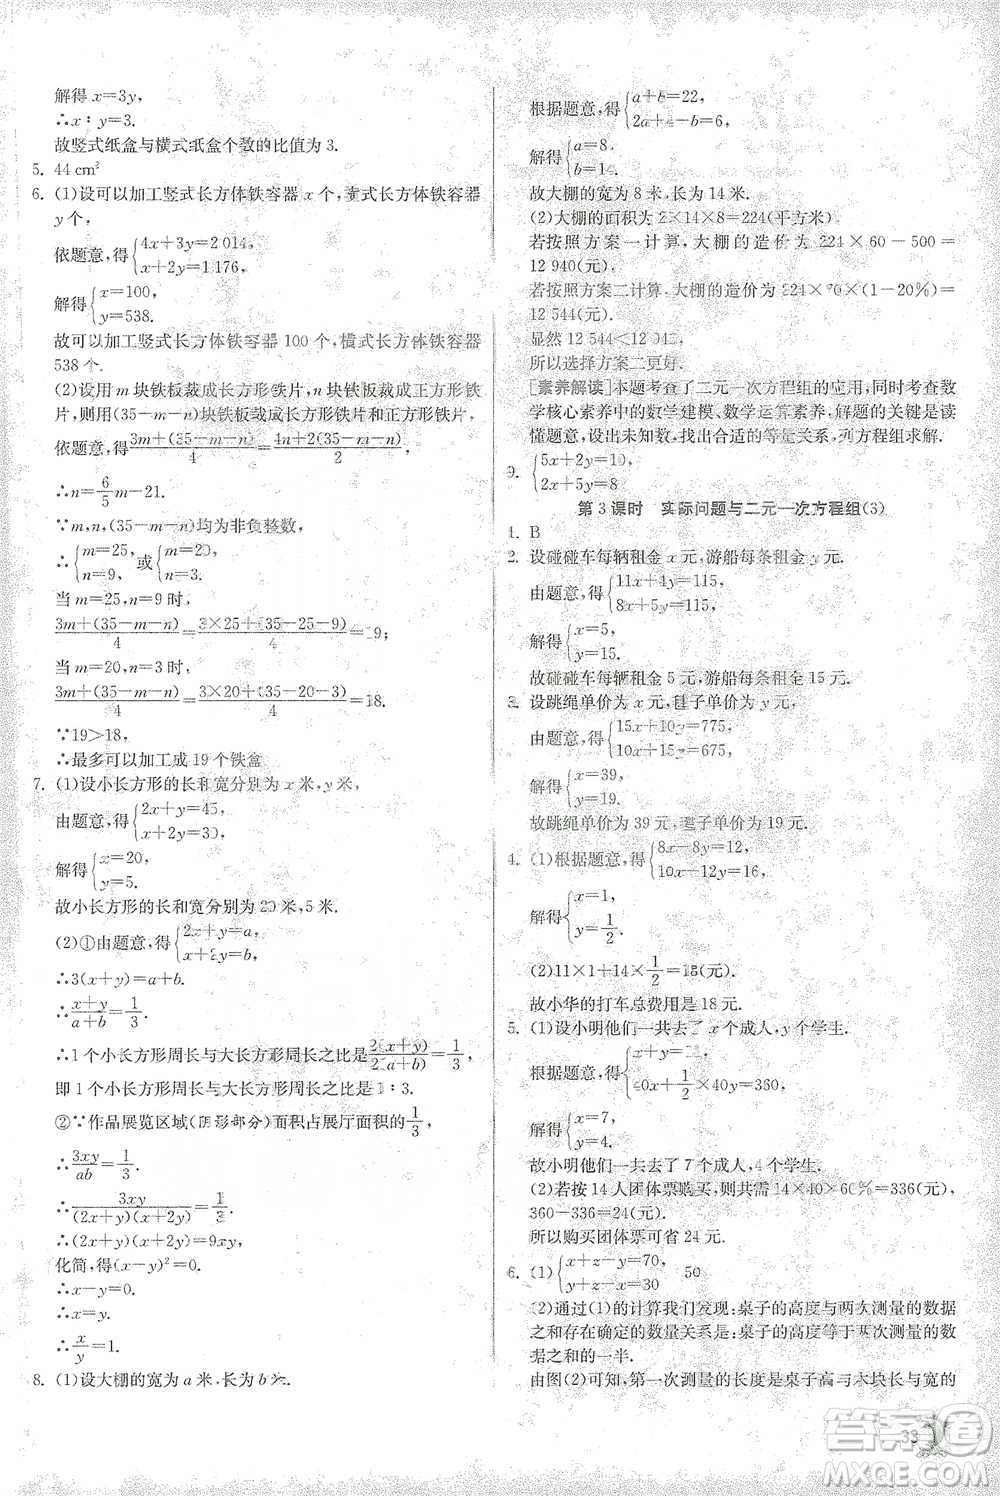 解得 x=3y,
∴x∶y=3.
故竖式纸盒与横式纸盒个数的比值为 3.
5. 44 cm²
6. (1)设可以加工竖式长方体铁容器 x 个,横式长方体铁容器
y 个,
依题意,得{4x+3y=2 014,
x+2y=1 176,
解得{x=100,
y=538.
故可以加工竖式长方体铁容器 100 个,横式长方体铁容器
538 个.
(2)设用 m 块铁板裁成长方形铁片,n 块铁板裁成正方形铁
片,则用(35-m-n)块铁板裁成长方形铁片和正方形铁片.
依题意,得 3m+(35-m-n)/3=4n+2(35-m-n)/2,
∴n=6/5 m-21.
∵m,n,(35-m-n)均为非负整数,
∴{m=25,
n=9, 或{m=20,
n=3.
当 m=25,n=9 时,
3m+(35-m-n)/4=3×25+(35-25-9)/4=19;
当 m=20,n=3 时,
3m+(35-m-n)/4=3×20+(35-20-3)/4=18.
∵19>18,
∴最多可以加工成 19 个铁盒
7. (1)设小长方形的长和宽分别为 x 米,y 米,
由题意,得{2x+y=45,
x+2y=30,
解得{x=20,
y=5.
故小长方形的长和宽分别为 20 米,5 米.
(2)①由题意,得{2x+y=a,
x+2y=b,
∴3(x+y)=a+b,
∴x+y/a+b=1/3.
∴1 个小长方形周长与大长方形周长之比是2(x+y)/2(a+b)=1/3,
即 1 个小长方形周长与大长方形周长之比是 1∶3.
②∵作品展览区域(阴影部分)面积占展厅面积的1/3,
∴3xy/ab=1/3.
∴3xy/(2x+y)(x+2y)=1/3,
∴(2x+y)(x+2y)=9xy,
化简,得(x-y)²=0.
∴x-y=0.
∴x=y.
∴x/y=1.
8. (1)设大棚的宽为 a 米,长为 b 米.
根据题意,得{a+b=22,
2a+b-6=1,
解得{a=8,
b=14.
故大棚的宽为 8 米,长为 14 米.
(2)大棚的面积为 2×14×8=224(平方米).
若按照方案一计算,大棚的造价为 224×60-500=
12 940(元).
若按照方案二计算,大棚的造价为 224×70×(1-20%)=
12 544(元).
显然 12 544<12 945.
所以选择方案二更好.
[素养解读]本题考查了二元一次方程组的应用,同时考查数
学核心素养中的数学建模、数学运算素养,解题的关键是读
懂题意,设出未知数,找出合适的等量关系,列方程组求解.
9. {5x+2y=10,
2x+5y=8
第 3 课时 实际问题与二元一次方程组(3)
1. B
2. 设碰碰车每辆租金 x 元,游船每条租金 y 元.
由题意,得{11x+4y=115,
8x+5y=115,
解得{x=5,
y=15.
故碰碰车每辆租金 5 元,游船每条租金 15 元.
3. 设跳绳单价为 x 元,毽子单价为 y 元.
由题意,得{15x+10y=775,
10x+15y=675,
解得{x=39,
y=19.
故跳绳单价为 39 元,毽子单价为 19 元.
4. (1)根据题意,得{8x+8y=12,
10x+12y=16,
解得{x=1,
y=1/2.
(2)11×1+14×1/2=18(元).
故小华的打车总费用是 18 元.
5. (1)设小明他们一共去了 x 个成人,y 个学生.
根据题意,得{x+y=11,
40x+1/2×40y=360,
解得{x=7,
y=4.
故小明他们一共去了 7 个成人,4 个学生.
(2)若按 14 人团体票购买,则共需 14×40×60%=336(元),
360-336=24(元).
所以购买团体票可省 24 元.
6. (1){x+z-y=70,
x+y-z=30 50
(2)通过(1)的计算我们发现:桌子的高度与两次测量的数据
之和存在确定的数量关系:桌子的高度等于两次测量的数
据之和的一半.
由图(2)可知,第一次测量的长度是桌子高与木块长与宽的
33
答案圈
MXQE.COM